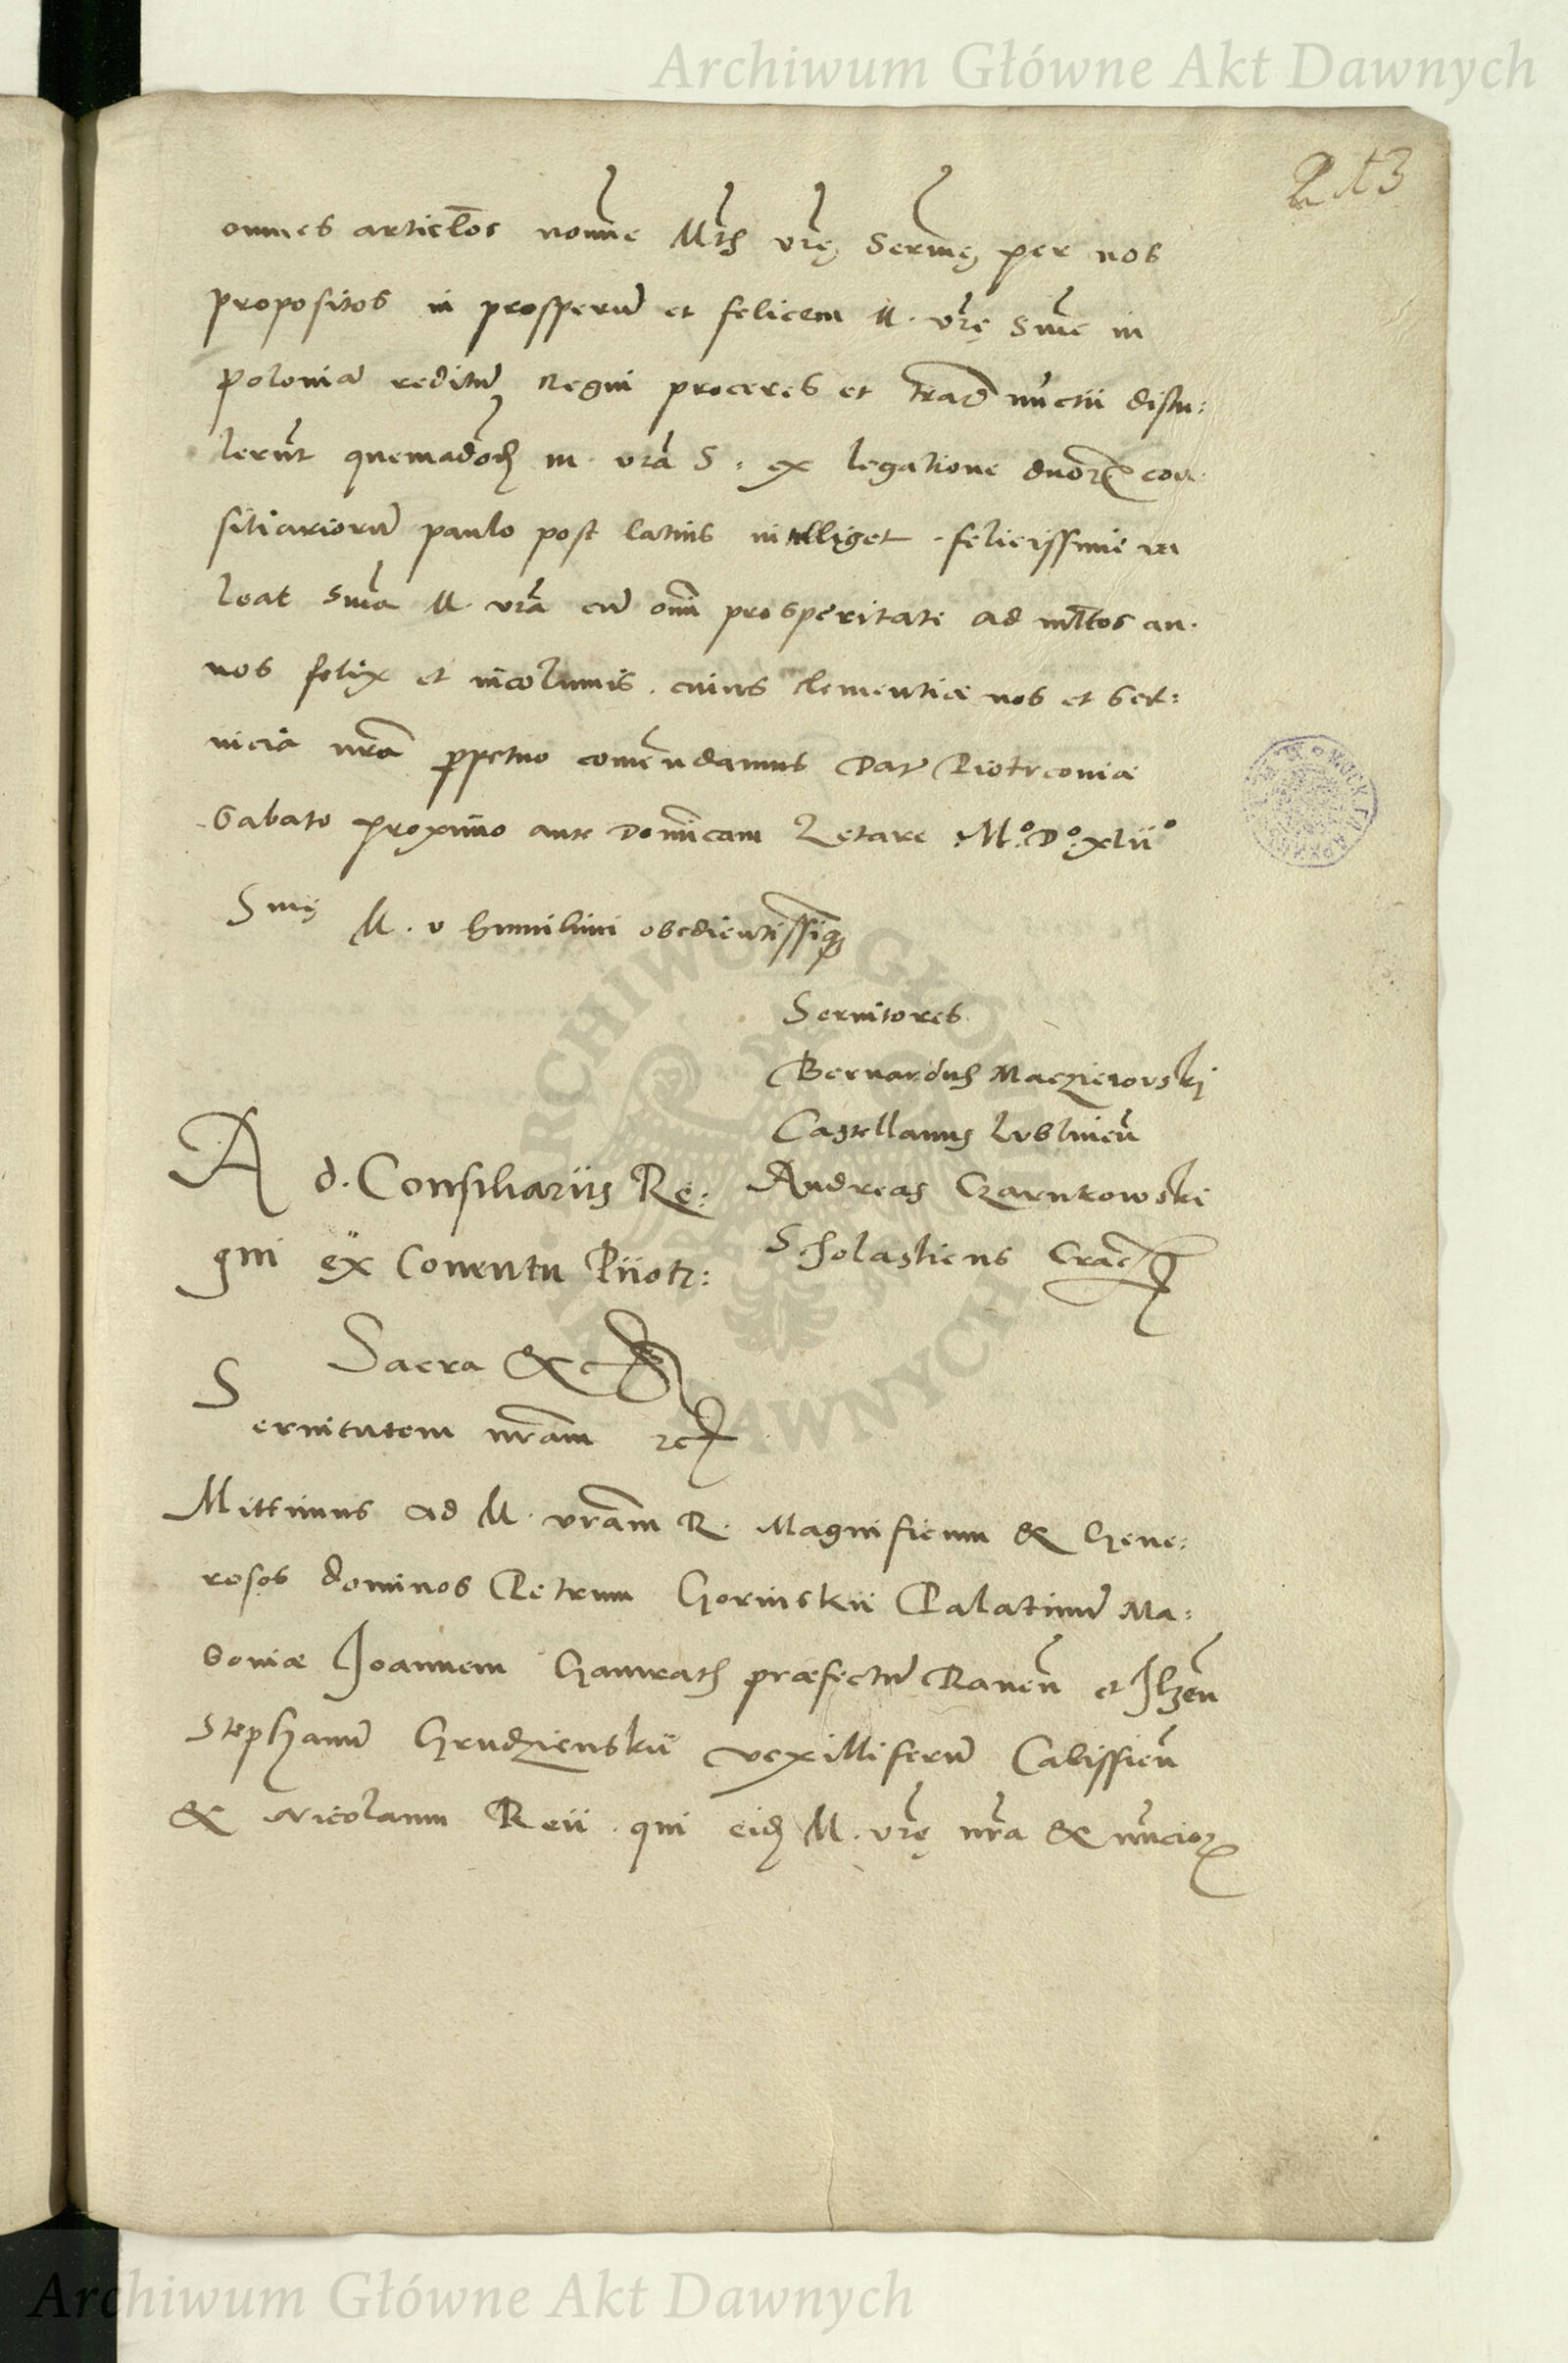 Archiwum Główne Akt Dawnych
213
omnes articl̃os nom̃ie Mtis vr̃ę Serm̃ę per nos
propositos in prosperũ et felicem M. vr̃ę Sm̃e in
Poloniã reditũ Regni proceres et nũctii distu:
lerũt quemadmodũ M. vrã S. ex legatione duorȝ con
siliariorũ paulo post latius intelliget. felicissime va
leat Sm̃a M. vrã cũ om̃i prosperitate ad ml̃tos an.
nos felix et incolumis. cuius clementiæ nos et ser:
uicia nrã ꝑpetuo comẽndamus Dat Piotrconiæ
Sabato proximo ante Dominicam Letare M.º D.º xlii º
Smę M. v humilimi obedientissimiq
Seruitores
Bernardus Macziejovskj
Castellanus Lublineñ
Andreas Czarnkowski
Scholasticus Crac
A d. Consiliariis Re:
gni ex Conuentu Piiotr:
Sacra &c
Seruitutem nrãm &c
Mittimus ad M. vrãm R. Magnificum & Gene:
rosos dominos Petrum Gorinskii Palatinũ Ma:
soniæ Joannem Gamrath præfectũ Raneñ et Ilzeñ
Stephanũ Grudzienskii vexilliferũ Calissieñ
& Nicolaum Reii. qui eid M. vr̃ę nrã & nũcioȝ
ARCHIWUM GŁÓWNE AKT DAWNYCH
Archiwum Główne Akt Dawnych